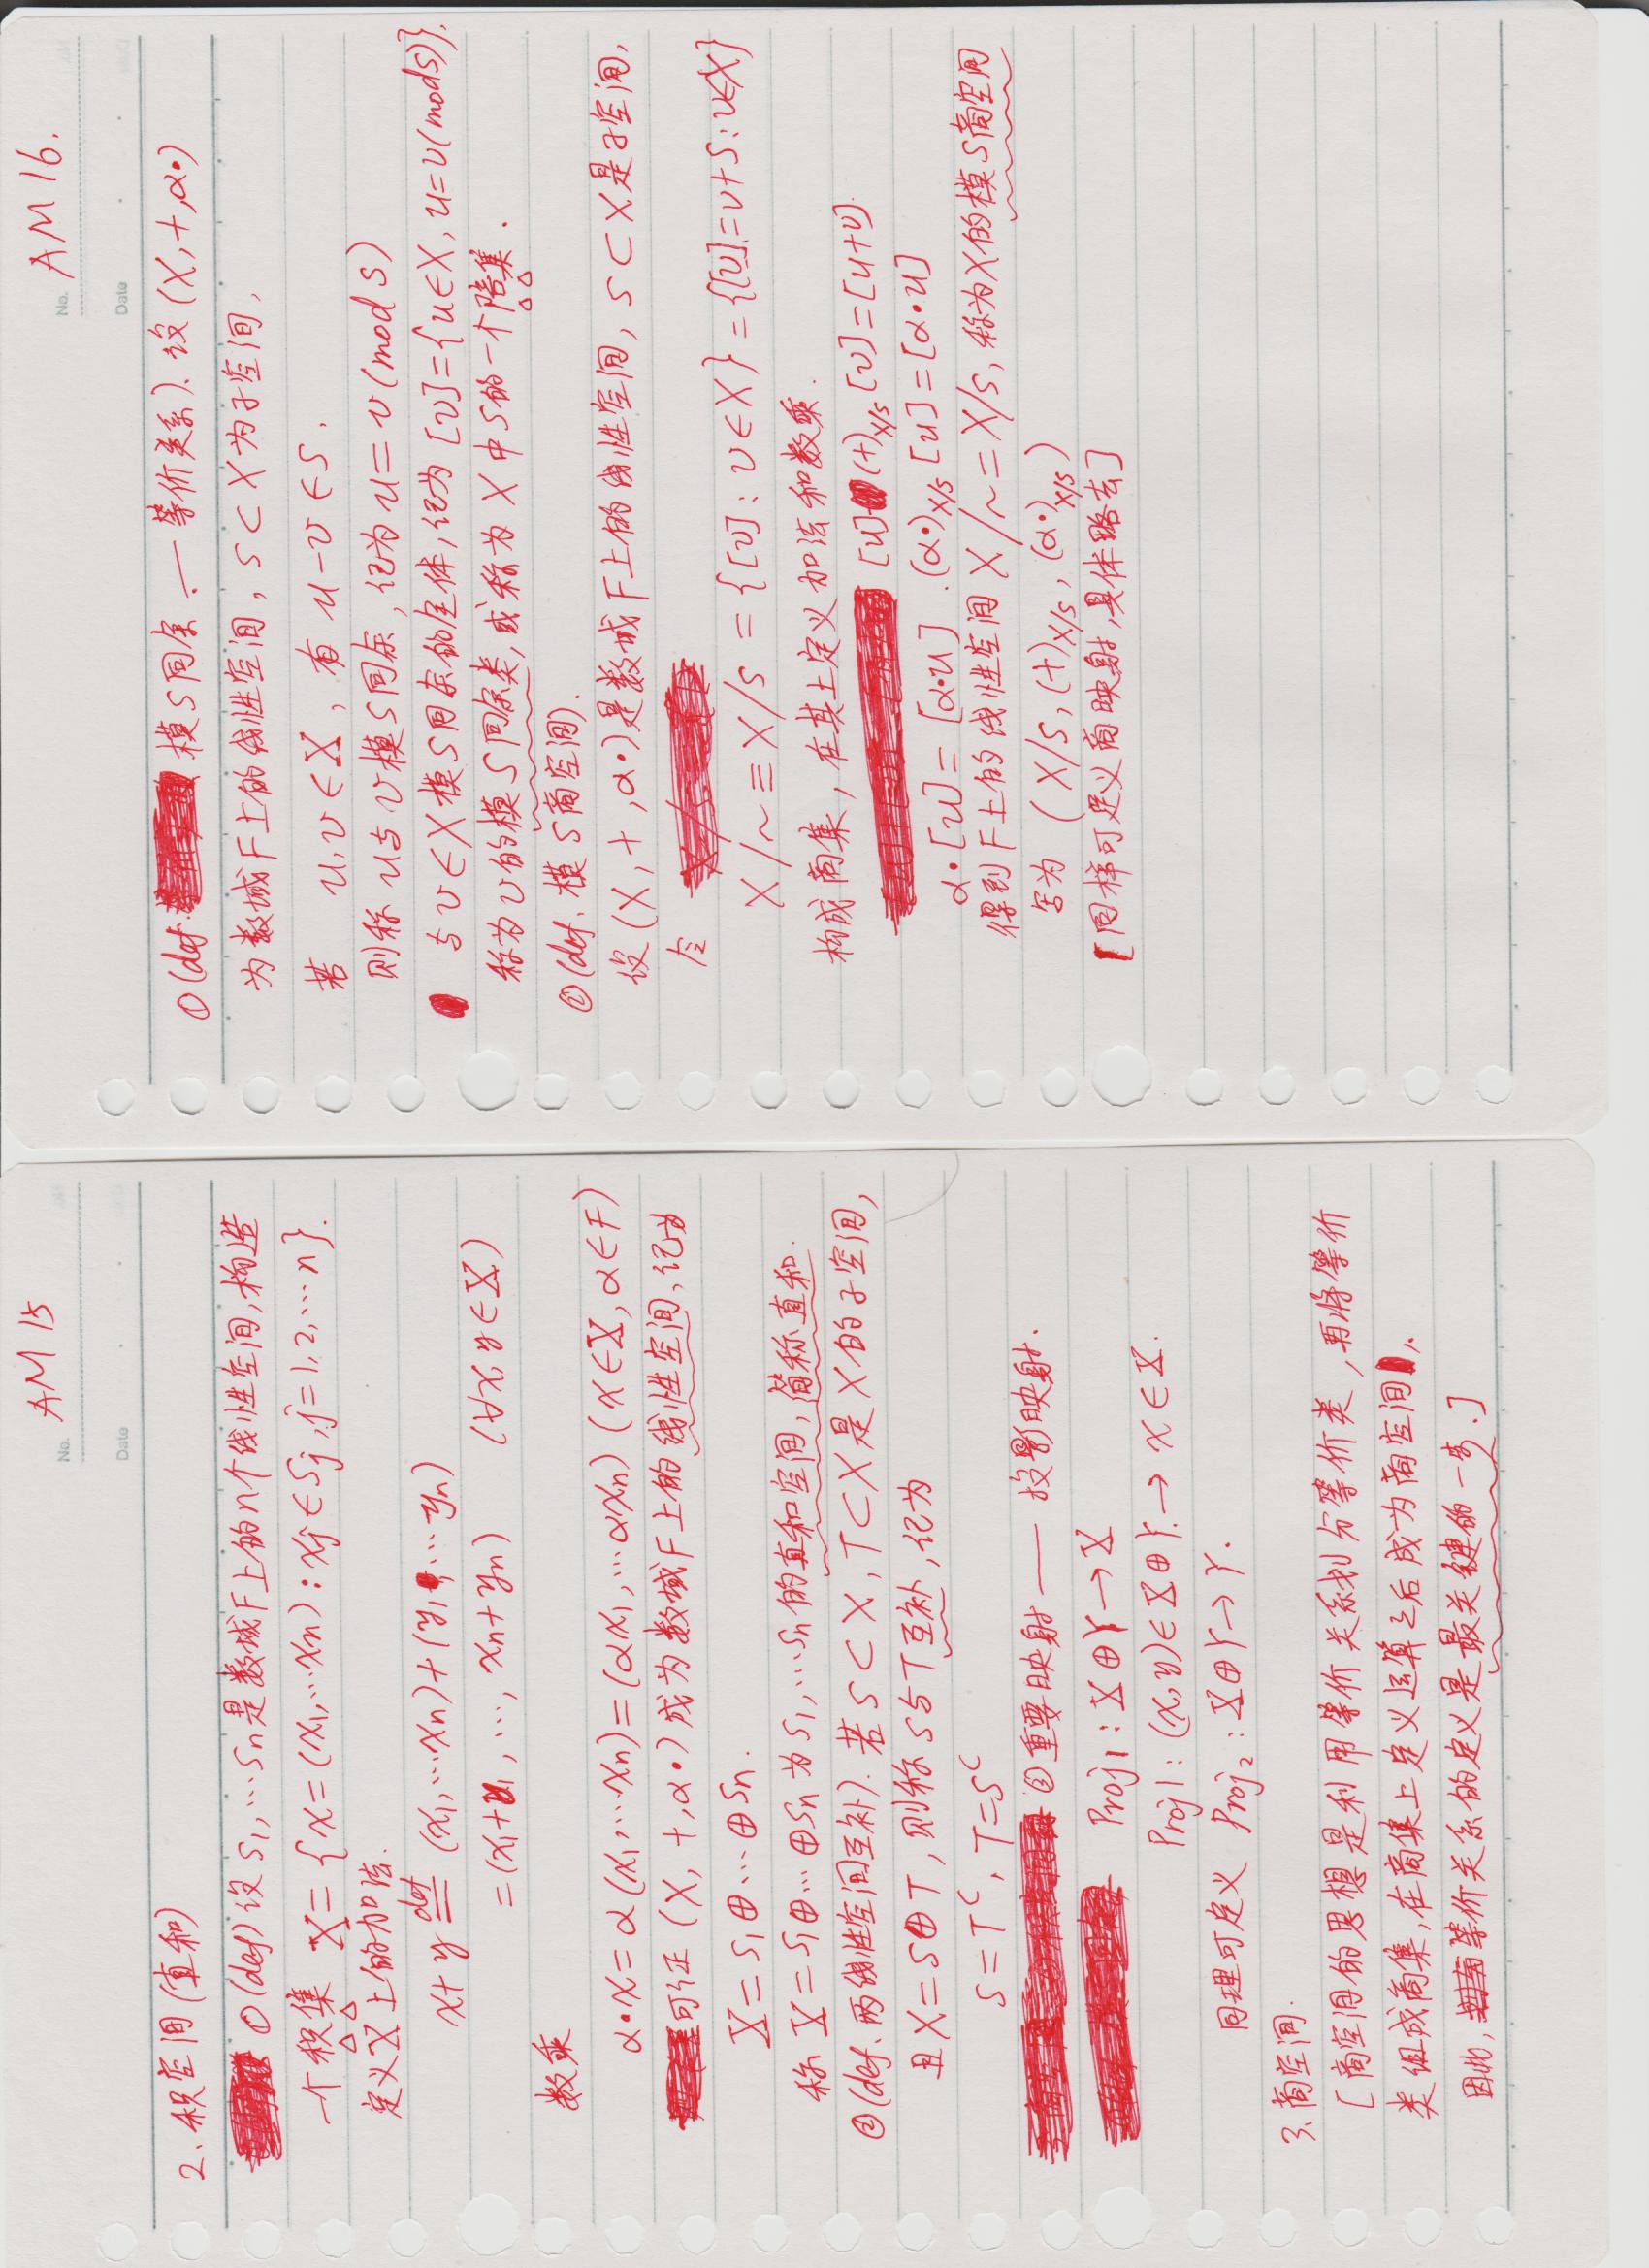 No. AM 15
Date
2、积空间(直和)
①(def)设 S₁,…Sn是数域F上的n个线性空间,构造
一个积集 X={x=(x₁,…xn):xj∈Sj,j=1,2,…n}.
定义X上的加法.
x+y def= (x₁,…xn)+(y₁,…yn)
=(x₁+y₁,…,xn+yn) (∀x,y∈X)
数乘
α•x=α(x₁,…xn)=(αx₁,…αxn) (x∈X,α∈F)
可证 (X,+,α•)成为数域F上的线性空间,记为
X=S₁⊕…⊕Sn.
称 X=S₁⊕…⊕Sn为S₁,…Sn的直和空间,简称直和.
②(def、两线性空间互补).若S⊂X,T⊂X是X的子空间,
且X=S⊕T,则称S与T互补,记为
S=Tᶜ,T=Sᶜ
③重要映射——投影映射.
Proj₁:X⊕Y→X
Proj1:(x,y)∈X⊕Y.→x∈X.
同理可定义 Proj₂:X⊕Y→Y.
3、商空间.
[商空间的思想是利用等价关系划分等价类,再将等价
类组成商集,在商集上定义运算之后成为商空间.
因此,等价关系的定义是最关键的一步.]
No. AM 16.
Date
①(def. 模S同余.—等价关系).设(X,+,α•)
为数域F上的线性空间,S⊂X为子空间,
若 u,v∈X,有u-v∈S.
则称u与v模S同余,记为u=v(mod S)
与v∈X模S同余的全体,记为[v]={u∈X,u=v(mod S)},
称为v的模S同余类,或称为X中S的一个陪集.
②(def、模S商空间).
设(X,+,α•)是数域F上的线性空间,S⊂X是子空间,
令
X/~≡X/S={[v]:v∈X}={[v]=v+S:v∈X}
构成商集,在其上定义加法和数乘.
[u](+)X/S[v]=[u+v].
α•[u]=[α•u].(α•)X/S[u]=[α•u]
得到F上的线性空间X/~=X/S,称为X的模S商空间
写为 (X/S,(+)X/S,(α•)X/S)
[同样可定义商映射,具体略去]